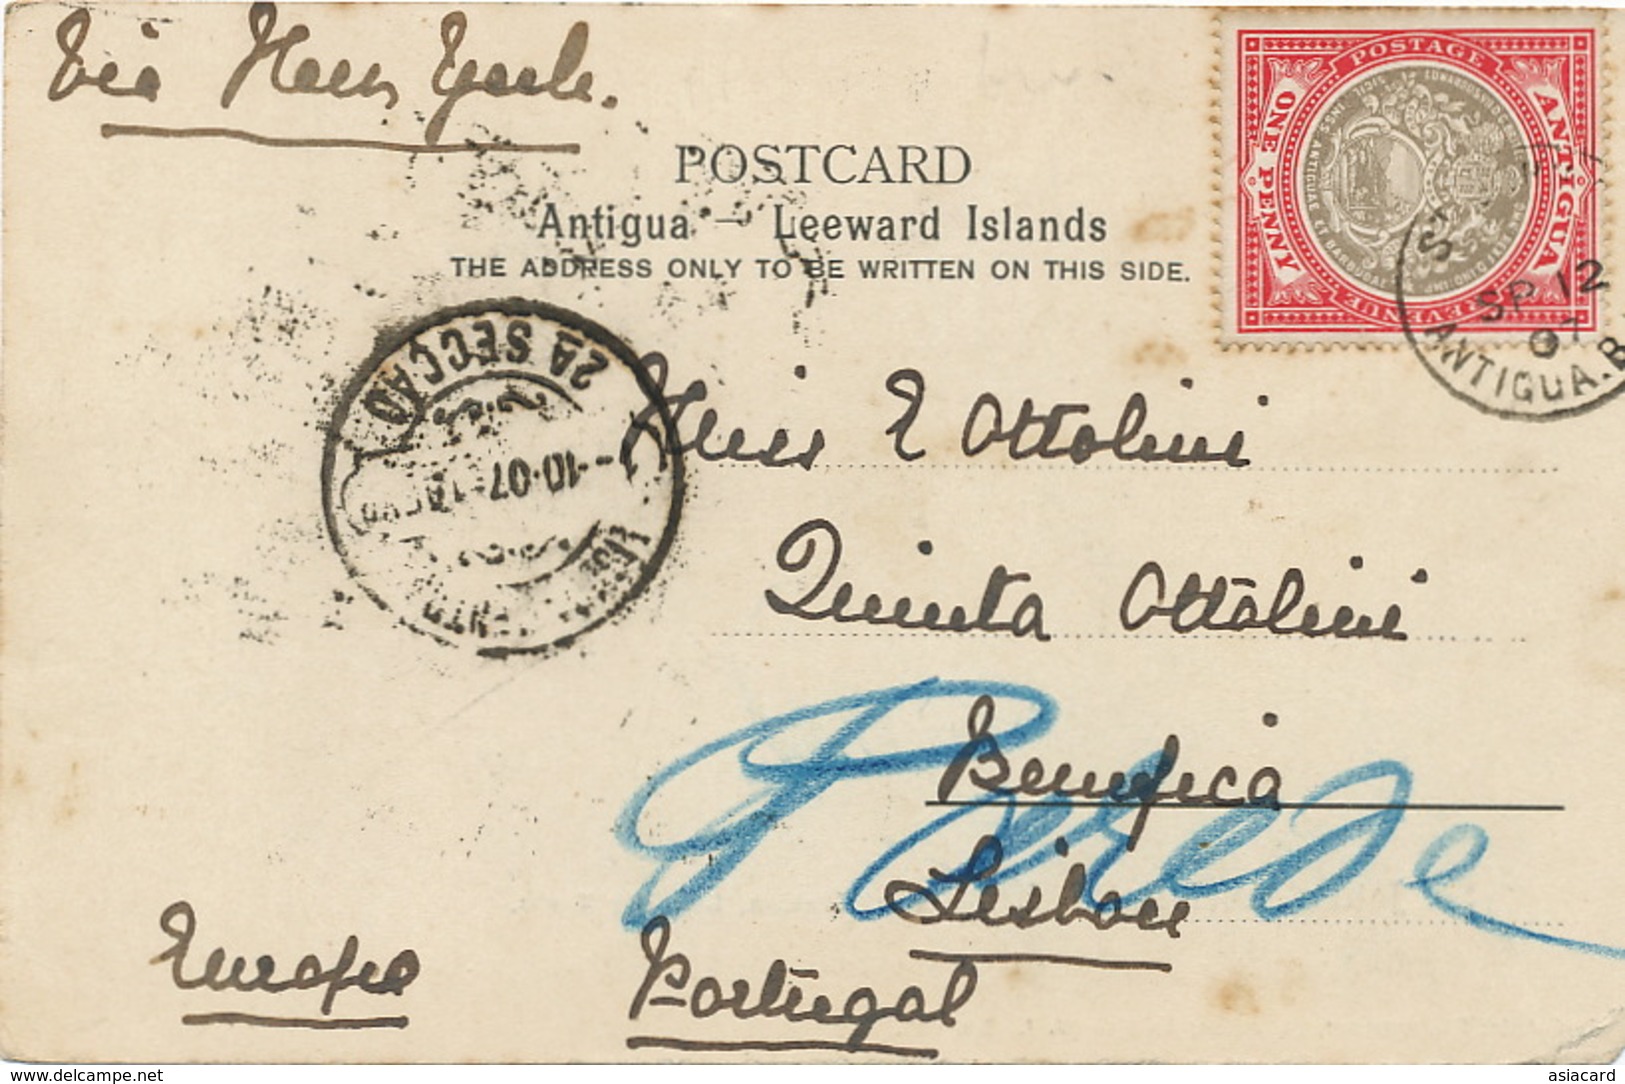 Via New York.
POSTCARD
Antigua — Leeward Islands
THE ADDRESS ONLY TO BE WRITTEN ON THIS SIDE.
POSTAGE
ANTIGUA
ONE PENNY
REVENUE
SP 12
07
ANTIGUA.B
2A SECÇAO
-10-07
Miss E Ottolini
Quinta Ottolini
Bemfica
Parede
Lisbon
Europe
Portugal
www.delcampe.net
asiacard